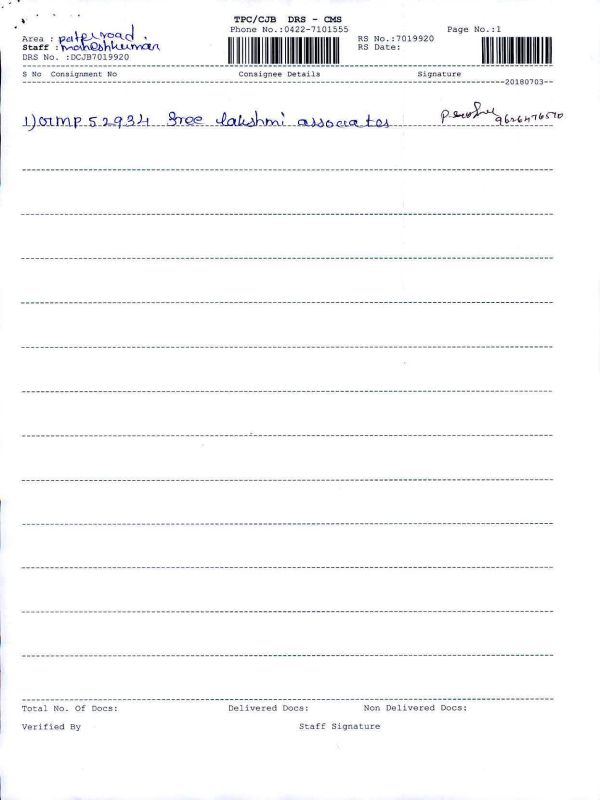 TPC/CJB DRS - CMS
Phone No.:0422-7101555
Page No.:1
Area :
Staff : maheshkumar
DRS No. :DCJB7019920
RS No.:7019920
RS Date:
S No Consignment No Consignee Details Signature
20180703
1) 52934 Sree lakshmi associates
9626476570
Total No. Of Docs: Delivered Docs: Non Delivered Docs:
Verified By Staff Signature